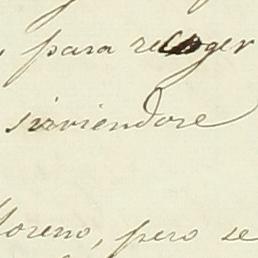 , para recoger
sirviendose
Moreno, pero se